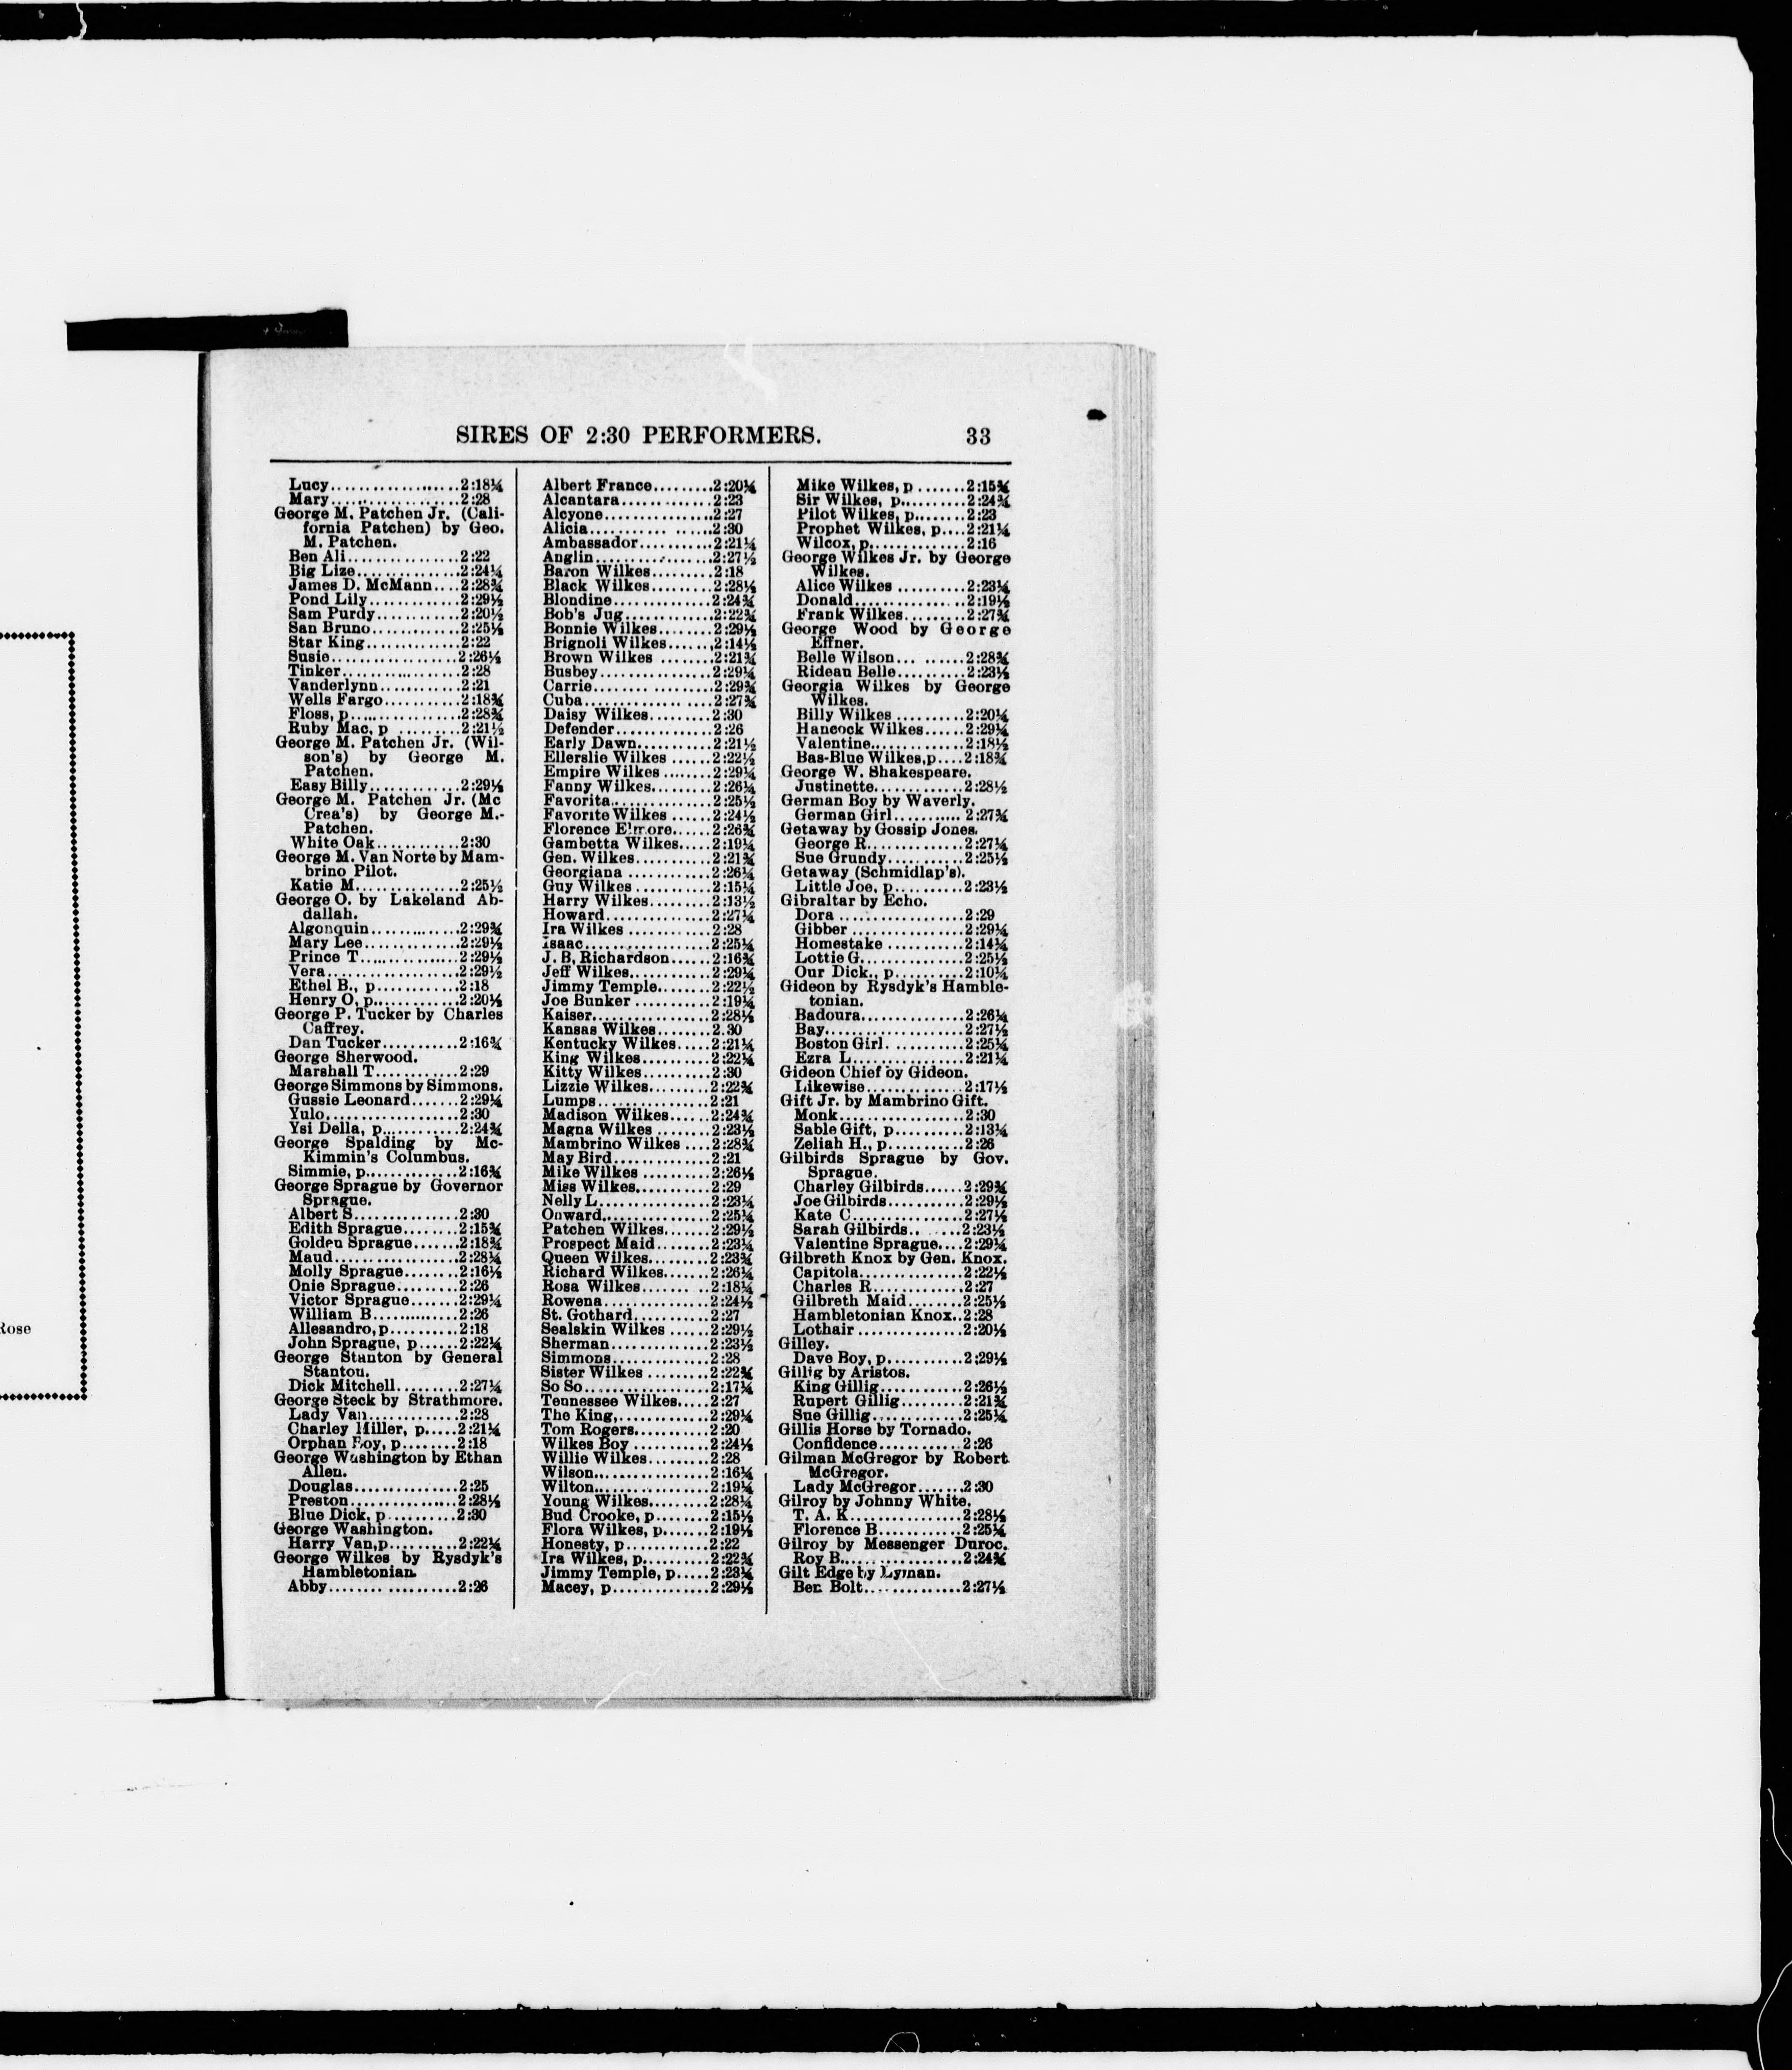 SIRES OF 2:30 PERFORMERS. 33
Lucy...................2:18¼
Mary...................2:28
George M. Patchen Jr. (Cali-
fornia Patchen) by Geo.
M. Patchen.
Ben Ali................2:22
Big Lize...............2:24¼
James D. McMann....2:28¾
Pond Lily.............2:29½
Sam Purdy............2:20½
San Bruno............2:25½
Star King.............2:22
Susie..................2:26½
Tinker.................2:28
Vanderlynn...........2:21
Wells Fargo...........2:18¾
Floss, p................2:28¾
Ruby Mac, p .........2:21½
George M. Patchen Jr. (Wil-
son's) by George M.
Patchen.
Easy Billy.............2:29½
George M. Patchen Jr. (Mc
Crea's) by George M.-
Patchen.
White Oak............2:30
George M. Van Norte by Mam-
brino Pilot.
Katie M...............2:25½
George O. by Lakeland Ab-
dallah.
Algonquin.............2:29¾
Mary Lee..............2:29½
Prince T..............2:29½
Vera...................2:29½
Ethel B., p............2:18
Henry O, p............2:20½
George P. Tucker by Charles
Caffrey.
Dan Tucker...........2:16¾
George Sherwood.
Marshall T............2:29
George Simmons by Simmons.
Gussie Leonard.......2:29¼
Yulo...................2:30
Ysi Della, p...........2:24¾
George Spalding by Mc-
Kimmin's Columbus.
Simmie, p.............2:16¾
George Sprague by Governor
Sprague.
Albert S...............2:30
Edith Sprague........2:15¾
Golden Sprague.......2:18¾
Maud..................2:28¼
Molly Sprague........2:16½
Onie Sprague.........2:26
Victor Sprague.......2:29¼
William B.............2:26
Allesandro, p..........2:18
John Sprague, p......2:22¼
George Stanton by General
Stanton.
Dick Mitchell.........2:27¼
George Steck by Strathmore.
Lady Van.............2:28
Charley Miller, p.....2:21¼
Orphan Boy, p........2:18
George Washington by Ethan
Allen.
Douglas...............2:25
Preston................2:28½
Blue Dick, p..........2:30
George Washington.
Harry Van,p..........2:22¼
George Wilkes by Rysdyk's
Hambletonian.
Abby...................2:26
Albert France.........2:20¼
Alcantara.............2:23
Alcyone...............2:27
Alicia.................2:30
Ambassador...........2:21¼
Anglin.................2:27½
Baron Wilkes.........2:18
Black Wilkes.........2:28½
Blondine..............2:24¾
Bob's Jug.............2:22¾
Bonnie Wilkes........2:29½
Brignoli Wilkes.......2:14½
Brown Wilkes ........2:21¾
Busbey................2:29¼
Carrie.................2:29¾
Cuba..................2:27¾
Daisy Wilkes.........2:30
Defender..............2:26
Early Dawn...........2:21½
Ellerslie Wilkes ......2:22½
Empire Wilkes ........2:29¼
Fanny Wilkes.........2:26¼
Favorita...............2:25½
Favorite Wilkes ......2:24½
Florence Elmore......2:26¾
Gambetta Wilkes.....2:19¼
Gen. Wilkes...........2:21¾
Georgiana ............2:26¼
Guy Wilkes ...........2:15¼
Harry Wilkes.........2:13½
Howard...............2:27¼
Ira Wilkes ............2:28
Isaac..................2:25¼
J. B. Richardson......2:16¾
Jeff Wilkes............2:29¼
Jimmy Temple........2:22½
Joe Bunker ...........2:19¼
Kaiser.................2:28½
Kansas Wilkes........2.30
Kentucky Wilkes.....2:21¼
King Wilkes..........2:22¼
Kitty Wilkes..........2:30
Lizzie Wilkes.........2:22¾
Lumps................2:21
Madison Wilkes......2:24¾
Magna Wilkes ........2:23½
Mambrino Wilkes ....2:28¾
May Bird..............2:21
Mike Wilkes ..........2:26½
Miss Wilkes...........2:29
Nelly L................2:23¼
Onward...............2:25¼
Patchen Wilkes.......2:29½
Prospect Maid........2:23¼
Queen Wilkes.........2:23¾
Richard Wilkes.......2:26¼
Rosa Wilkes..........2:18¼
Rowena...............2:24½
St. Gothard...........2:27
Sealskin Wilkes ......2:29½
Sherman..............2:23½
Simmons..............2:28
Sister Wilkes .........2:22¾
So So..................2:17¼
Tennessee Wilkes.....2:27
The King..............2:29¼
Tom Rogers...........2:20
Wilkes Boy ...........2:24½
Willie Wilkes.........2:28
Wilson.................2:16¼
Wilton.................2:19¼
Young Wilkes.........2:28¼
Bud Crooke, p........2:15½
Flora Wilkes, p.......2:19½
Honesty, p............2:22
Ira Wilkes, p..........2:22¾
Jimmy Temple, p.....2:23¼
Macey, p..............2:29½
Mike Wilkes, p .......2:15¾
Sir Wilkes, p..........2:24¾
Pilot Wilkes, p........2:23
Prophet Wilkes, p....2:21¼
Wilcox, p..............2:16
George Wilkes Jr. by George
Wilkes.
Alice Wilkes ..........2:23¼
Donald................2:19½
Frank Wilkes.........2:27¾
George Wood by George
Effner.
Belle Wilson... ......2:28¾
Ridean Belle..........2:23½
Georgia Wilkes by George
Wilkes.
Billy Wilkes ..........2:20¼
Hancock Wilkes......2:29¼
Valentine..............2:18½
Bas-Blue Wilkes,p....2:18¾
George W. Shakespeare.
Justinette.............2:28½
German Boy by Waverly.
German Girl........... 2:27¾
Getaway by Gossip Jones.
George R..............2:27¼
Sue Grundy...........2:25½
Getaway (Schmidlap's).
Little Joe, p..........2:23½
Gibraltar by Echo.
Dora ..................2:29
Gibber ................2:29¼
Homestake ...........2:14¼
Lottie G...............2:25½
Our Dick., p..........2:10¼
Gideon by Rysdyk's Hamble-
tonian.
Badoura...............2:26¼
Bay....................2:27½
Boston Girl. ..........2:25¼
Ezra L................2:21¼
Gideon Chief by Gideon.
Likewise..............2:17½
Gift Jr. by Mambrino Gift.
Monk..................2:30
Sable Gift, p..........2:13¼
Zeliah H., p...........2:26
Gilbirds Sprague by Gov.
Sprague.
Charley Gilbirds......2:29¾
Joe Gilbirds...........2:29½
Kate C................2:27½
Sarah Gilbirds.. .....2:23½
Valentine Sprague....2:29¼
Gilbreth Knox by Gen. Knox.
Capitola...............2:22½
Charles R.............2:27
Gilbreth Maid........2:25½
Hambletonian Knox..2:28
Lothair ...............2:20½
Gilley.
Dave Boy, p...........2:29½
Gillig by Aristos.
King Gillig............2:26½
Rupert Gillig.........2:21¾
Sue Gillig.............2:25¼
Gillis Horse by Tornado.
Confidence............2:26
Gilman McGregor by Robert
McGregor.
Lady McGregor.......2:30
Gilroy by Johnny White.
T. A. K................2:28½
Florence B............2:25¼
Gilroy by Messenger Duroc.
Roy B..................2:24¾
Gilt Edge by Lyman.
Ben Bolt..............2:27½
Rose